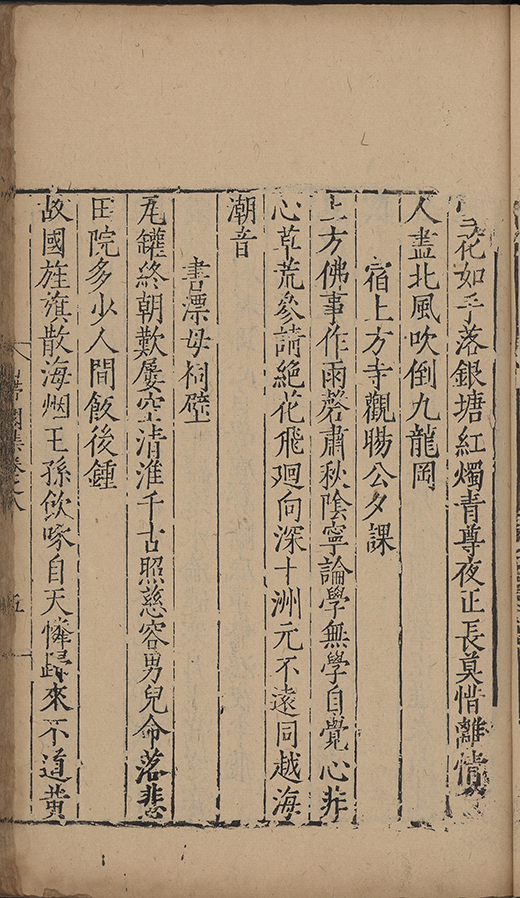 花如手落銀塘紅燭青尊夜正長莫惜離情
人盡北風吹倒九龍岡
宿上方寺觀暘公夕課
上方佛事作雨磬肅秋陰寧論學無學自覺心非
心草荒參請絕花飛廻向深十洲元不遠同越海
潮音
書漂母祠壁
瓦罐終朝歎屢空清淮千古照慈容男兒命落悲
田院多少人間飯後鍾
故國旌旗散海烟王孫飲啄自天憐歸來不道黃
集卷之八
五